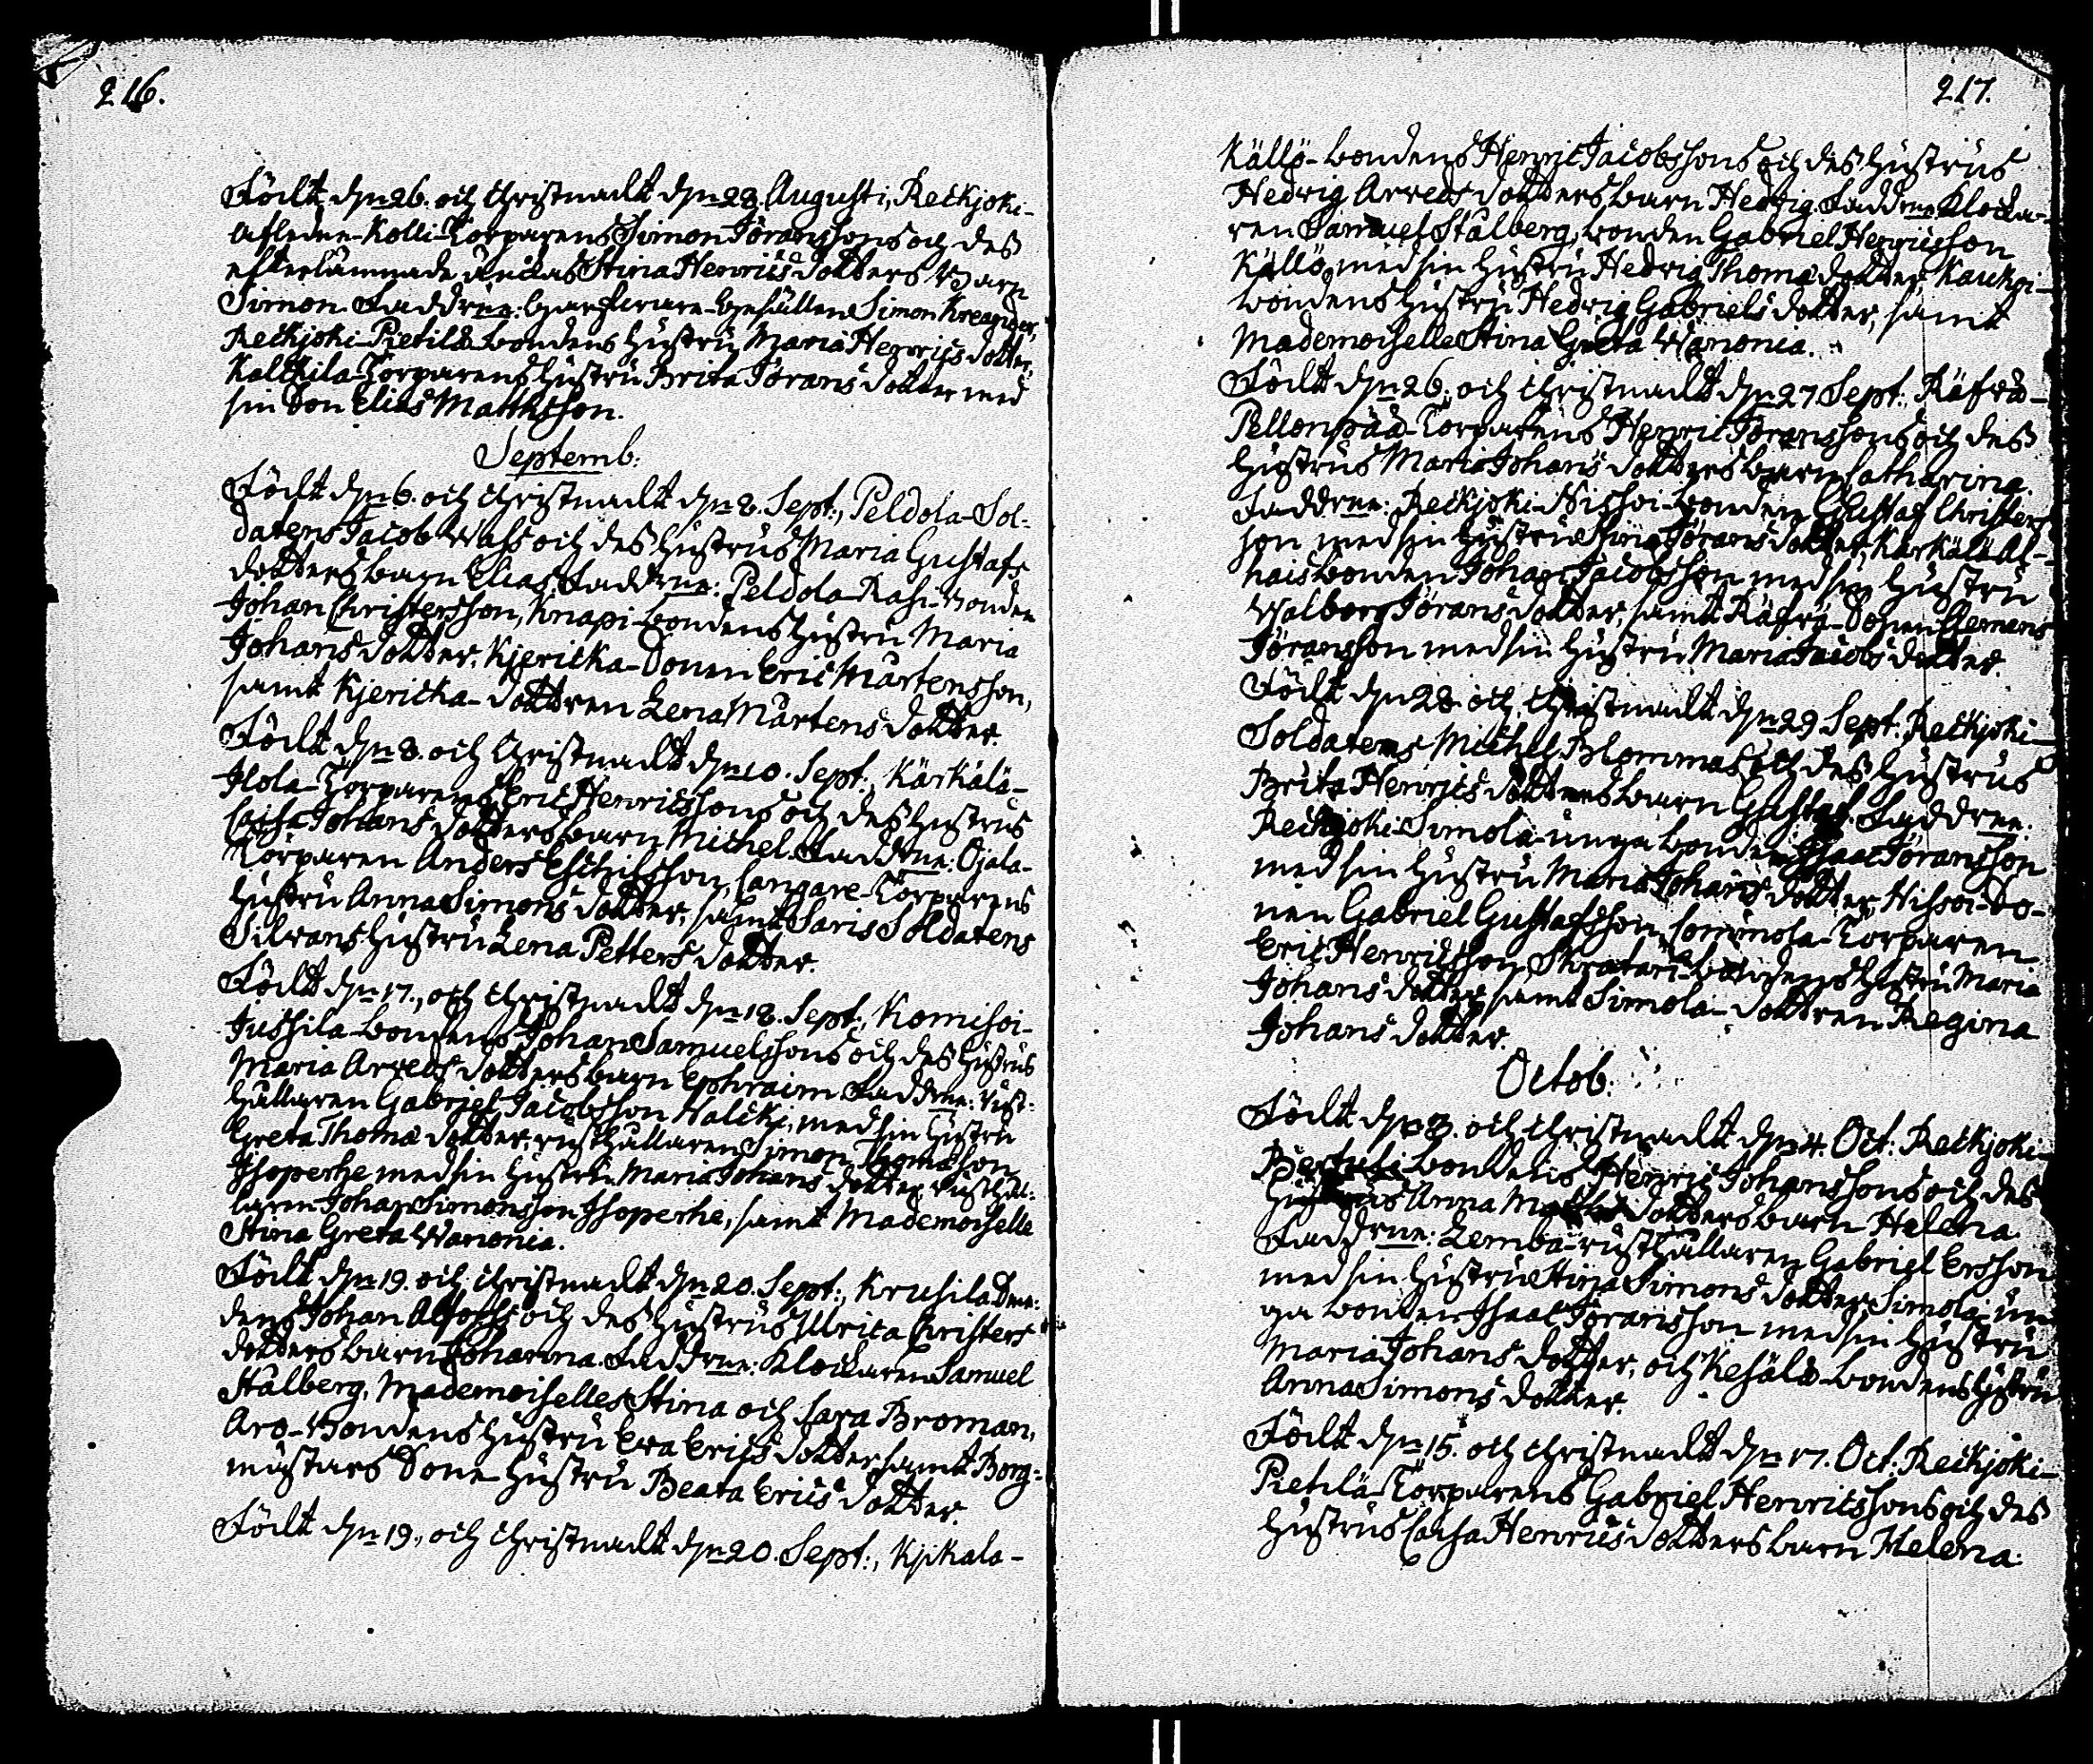 216.
Födt d:n 26. och Christnadt d:n 28. Augusti, Reckjoki-
Afledne-Kolli-Torparens Simon Jöranssons och des
efterlämnade änckas Stina Henrics dotters Barn
Simon. Faddrne: Garfware-Gesällen Simon Kreander,
Reckjoki-Pietilä-bondens hustru Maria Henrics dotter,
Kalckila-Torparens hustru Brita Jörans dotter med
sin Son Elias Matthsson.
Septemb:
Födt d:n 6. och Christnadt d:n 8. Sept:, Peldola-Sol-
datens Jacob Wass och des hustrus Maria Gustafs
dotters barn Elias. Faddrne: Peldola-Rasi-Bonden
Johan Christersson, Knapi-bondens hustru Maria
Johans dotter, Kjericka-Sonen Eric Mårtensson,
samt Kjericka-dottren Lena Mårtens dotter.
Födt d:n 8. och Christnadt d:n 10. Sept:, Kärkälä-
Ilola-Torparens Eric Henricssons och des hustrus
Caisa Johans dotters barn Michel. Faddrne: Ojala-
Torparen Anders Eschilsson, Cangare-Torparens
hustru Anna Simons dotter, samt Saris Soldatens
Silvans hustru Lena Petters dotter.
Födt d:n 17., och Christnadt d:n 18. Sept:, Komisoi-
Jussila-bondens Johan Samuelssons och des hustrus
Maria Arveds dotters barn Ephraim. Faddrne: rust-
hållaren Gabriel Jacobsson Halcki, med sin hustru
Greta Thomæ dotter, rusthållaren Simon Thomæson
Isoperhe med sin hustru Maria Johans dotter, rusthål-
laren Johan Simonsson Isoperhe, samt Mademoiselle
Stina Greta Wanonia.
Födt d:n 19. och Christnadt d:n 20. Sept:, Krusila
dens Johan och des hustrus Ulrica Christers
dotters barn Johanna. Faddrne: Klockaren Samuel
Stålberg, Mademoiselles Stina och Sara Broman,
Aro-Bondens hustru Eva Erics dotter samt Borg-
mästars Sone-hustru Beata Erics dotter.
Födt d:n 19., och Christnadt d:n 20. Sept:, Kjikala-
217.
Källö-bondens Henric Jacobssons och des hustrus
Hedvig Arveds dotters barn Hedvig. Faddrne Klocka-
ren Samuel Stålberg, bonden Gabriel Henricsson
Källö, med sin hustru Hedvig Thomæ dotter, Kaukoi-
bondens hustru Hedvig Gabriels dotter, samt
Mademoiselle Stina Greta Wanonia.
Födt d:n 26. och Christnadt d:n 27 Sept:, Räfvå-
Pellonpää-Torparens Henric Jöranssons och des
hustrus Maria Johans dotters barn Catharina.
Faddrne: Reckjoki-Nissoi-bonden Gustaf Christers
son med sin hustru Jörans dotter, Kärkälä Al-
haisbonden Johan Jacobsson med sin hustru
Walborg Jörans dotter, samt Räfvå-Sonen Clemens
Jöransson med sin hustru Maria Jacobs dotter.
Födt d:n 28. och Christnadt d:n 29 Sept: Reckjoki-
Soldatens Michel Blommas och des hustrus
Brita Henrics dotters barn Gustaf. Faddrne:
Reckjoki-Simola-unga bonden Isaac Jöransson
med sin hustru Maria Johans dotter, Nissoi-So-
nen Gabriel Gustafsson, Torparen
Eric Henricsson, Skratari-bondens hustru Maria
Johans dotter, samt Simola-dottren Regina
Johans dotter.
Octob:
Födt d:n 3. och Christnadt d:n 4. Oct: Reckjoki-
bondens Henric Johanssons och des
hustrus Anna dotters barn Helena.
Faddrne: Zemba-rusthållaren Gabriel Ersson
med sin hustru Stina Simons dotter, Simola-un
ga bonden Isaac Jöransson med sin hustru
Maria Johans dotter, och Kesälä-bondens hustru
Anna Simons dotter.
Födt d:n 15. och Christnadt d:n 17. Oct: Reckjoki-
Pietilä-Torparens Gabriel Henricssons och des
hustrus Caisa Henrics dotters barn Helena.